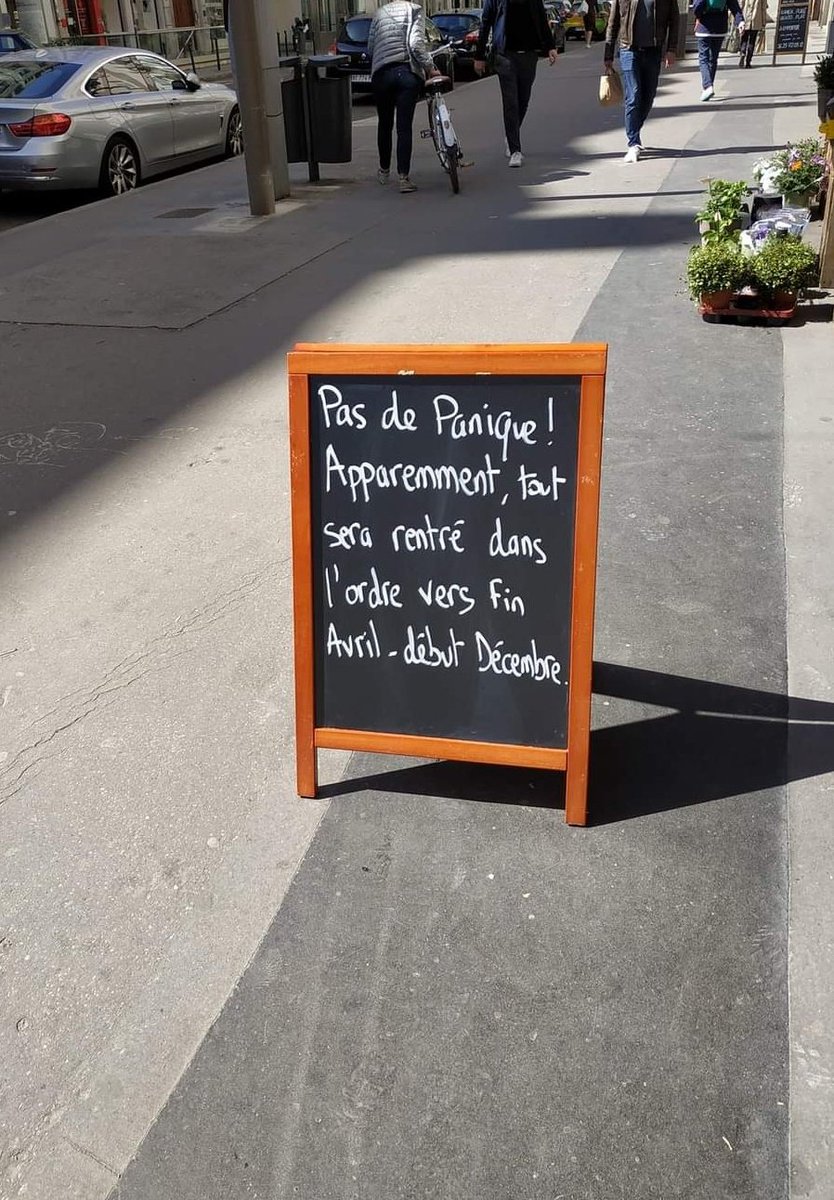 Pas de Panique!
Apparemment, tout
sera rentré dans
l'ordre vers fin
Avril - début Décembre.